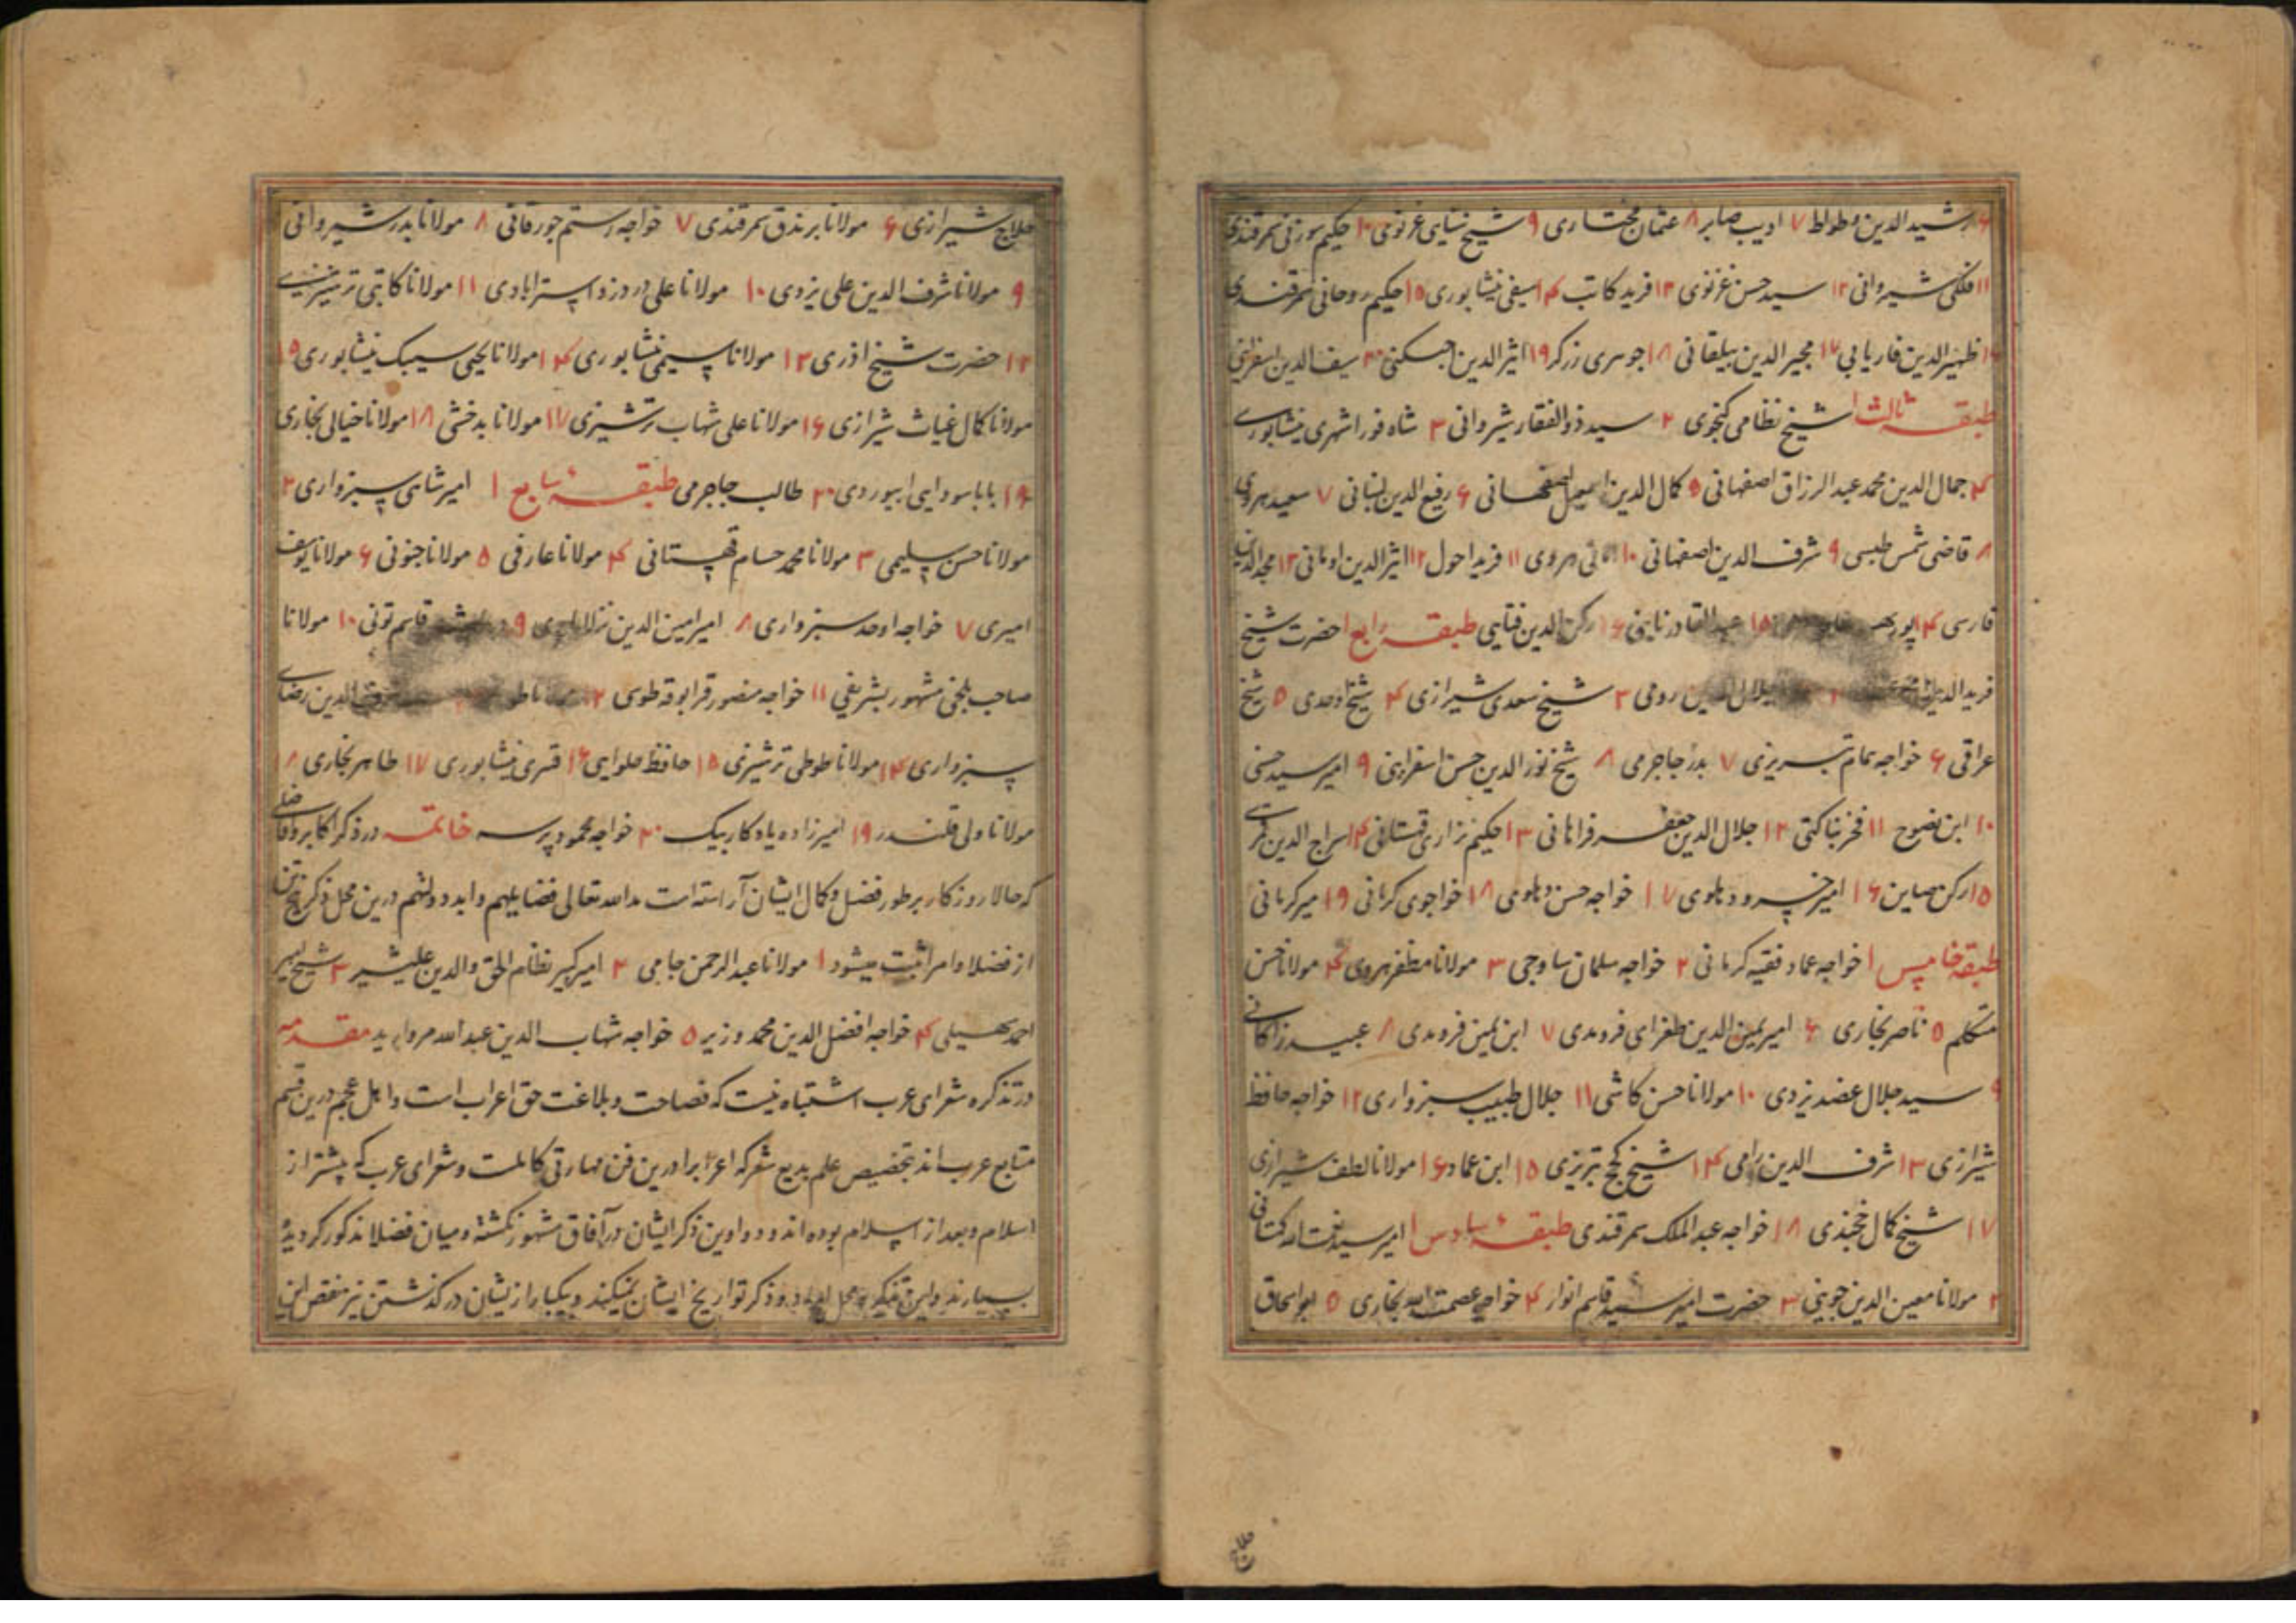 ۶ رشیدالدین وطواط ۷ ادیب صابر ۸ عثمان مختاری ۹ شیخ سنایی غزنوی ۱۰ حکیم سوزنی سمرقندی
۱۱ فلکی شیروانی ۱۲ سید حسن غزنوی ۱۳ فرید کاتب ۱۴ سیفی نیشابوری ۱۵ حکیم روحانی سمرقندی
۱۶ ظهیرالدین فاریابی ۱۷ مجیرالدین بیلقانی ۱۸ جوهری زرکر ۱۹ اثیرالدین اخسیکتی ۲۰ سیف الدین اسفرنکی
طبقه ثالث ۱ شیخ نظامی کنجوی ۲ سید ذوالفقار شیروانی ۳ شاه فور اشهری نیشابوری
۴ جمال الدین محمد عبدالرزاق اصفهانی ۵ کمال الدین اسمعیل اصفهانی ۶ رفیع الدین لنبانی ۷ سعید هروی
۸ قاضی شمس طبسی ۹ شرف الدین اصفهانی ۱۰ امامی هروی ۱۱ فرید احول ۱۲ اثیرالدین اومانی ۱۳ مجدالدین
فارسی ۱۴ پوربها ۱۵ عبدالقادر نایینی ۱۶ رکن الدین قبایی طبقه رابع ۱ حضرت شیخ
فریدالدین ۲ جلال الدین رومی ۳ شیخ سعدی شیرازی ۴ شیخ اوحدی ۵ شیخ
عراقی ۶ خواجه همام تبریزی ۷ بدر جاجرمی ۸ شیخ نورالدین حسن اسفراینی ۹ امیر سید حسینی
۱۰ ابن نصوح ۱۱ فخر بناکتی ۱۲ جلال الدین جعفر فراهانی ۱۳ حکیم نزاری قهستانی ۱۴ سراج الدین قمری
۱۵ رکن صاین ۱۶ امیر خسرو دهلوی ۱۷ خواجه حسن دهلوی ۱۸ خواجوی کرمانی ۱۹ میر کرمانی
طبقه خامس ۱ خواجه عماد فقیه کرمانی ۲ خواجه سلمان ساوجی ۳ مولانا مظفر هروی ۴ مولانا حسن
متکلم ۵ ناصر بخاری ۶ امیر یمین الدین طغرای فرومدی ۷ ابن یمین فرومدی ۸ عبید زاکانی
۹ سید جلال عضد یزدی ۱۰ مولانا حسن کاشی ۱۱ جلال طبیب سبزواری ۱۲ خواجه حافظ
شیرازی ۱۳ شرف الدین رامی ۱۴ شیخ کجج تبریزی ۱۵ ابن عماد ۱۶ مولانا لطف شیرازی
۱۷ شیخ کمال خجندی ۱۸ خواجه عبدالملک سمرقندی طبقه سادس ۱ امیر سید نعمت الله کهستانی
۲ مولانا معین الدین جوینی ۳ حضرت امیر سید قاسم انوار ۴ خواجه عصمت الله بخاری ۵ ابو اسحاق
حلاج شیرازی ۶ مولانا برندق سمرقندی ۷ خواجه رستم جورقانی ۸ مولانا بدر شیروانی
۹ مولانا شرف الدین علی یزدی ۱۰ مولانا علی دردزد استرابادی ۱۱ مولانا کاتبی ترشیزی
۱۲ حضرت شیخ اذری ۱۳ مولانا سیمی نیشابوری ۱۴ مولانا یحیی سیبک نیشابوری ۱۵
مولانا کمال غیاث شیرازی ۱۶ مولانا علی شهاب ترشیزی ۱۷ مولانا بدخشی ۱۸ مولانا خیالی بخاری
۱۹ بابا سودایی ابیوردی ۲۰ طالب جاجرمی طبقه سابع ۱ امیر شاهی سبزواری ۲
مولانا حسن سلیمی ۳ مولانا محمد حسام قهستانی ۴ مولانا عارفی ۵ مولانا جنونی ۶ مولانا یوسف
امیری ۷ خواجه اوحد سبزواری ۸ امیر امین الدین نزلابادی ۹ درویش قاسم تونی ۱۰ مولانا
صاحب بلخی مشهور بشریفی ۱۱ خواجه منصور قرابوقه طوسی الدین رضای
سبزواری ۱۴ مولانا طوطی ترشیزی ۱۵ حافظ حلوایی ۱۶ قنبری نیشابوری ۱۷ طاهر بخاری ۱۸
مولانا ولی قلندر ۱۹ امیرزاده یادکار بیک ۲۰ خواجه محمود برسه خاتمه در ذکر اکابر و افاضلی
که حالا روزکار بر طور فضل و کمال ایشان آراسته است مدالله تعالی فضایلهم و ابد دولتهم درین محل ذکر پنج تن
از فضلا و امرا ثبت میشود ۱ مولانا عبدالرحمن جامی ۲ امیر کبیر نظام الحق والدین علیشیر ۳ شیخ امیر
احمد سهیلی ۴ خواجه افضل الدین محمد وزیر ۵ خواجه شهاب الدین عبدالله مروارید مقدمه
در تذکره شعرای عرب اشتباه نیست که فصاحت و بلاغت حق اعراب است و اهل عجم درین قسم
متابع عرب اند بتخصیص علم بدیع شعر که اعرابرا درین فن مهارتی کاملست و شعرای عرب که پیشتر از
اسلام و بعد از اسلام بوده اند و دواوین ذکر ایشان در آفاق مشهور کشته و میان فضلا مذکور کردیده
بسیارند و این تذکره محل ذکر تواریخ ایشان نمیکند و بیکبار از یشان در کذشتن نیز منقص این